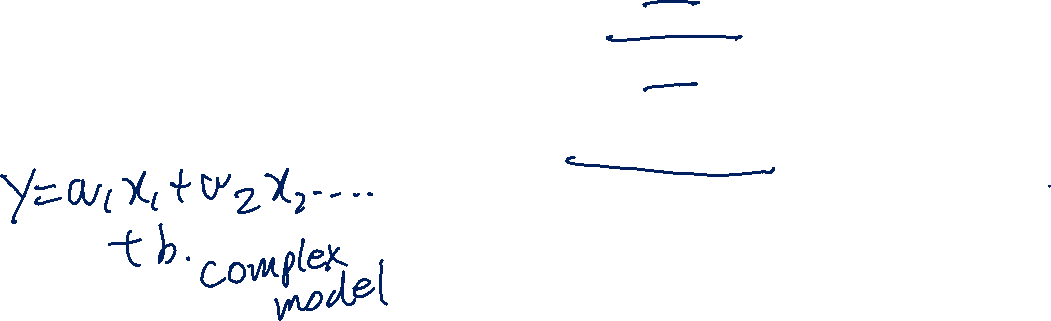 Y=w₁x₁+w₂x₂....
+b.
complex
model